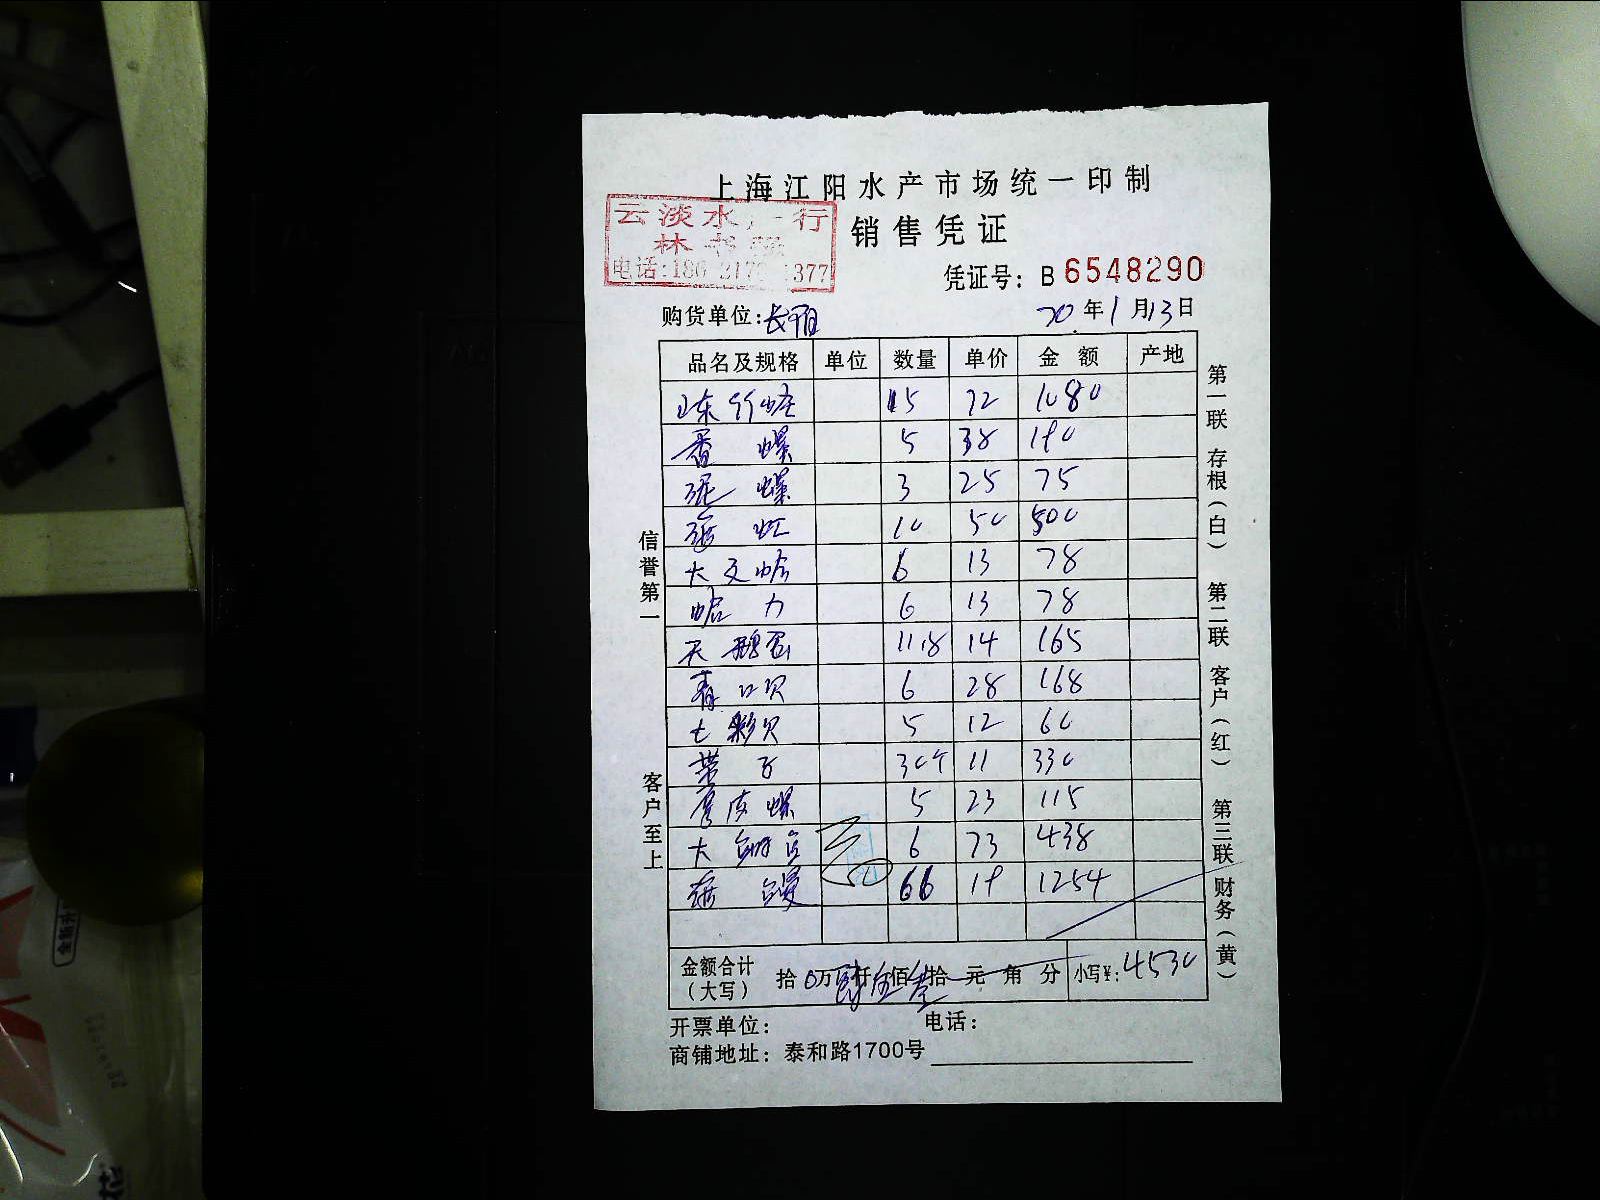 上海江阳水产市场统一印制
云淡水 行
林
电话:186 217 1377
销售凭证
凭证号: B 6548290
购货单位:
20 年 1 月 13 日
品名及规格 单位 数量 单价 金额 产地
山东竹蛏 15 72 1080
番螺 5 38 190
泥螺 3 25 75
10 50 500
大文蛤 6 13 78
蛤 力 6 13 78
天鹅蛋 11.8 14 165
青口贝 6 28 168
七彩贝 5 12 60
带子 30个 11 330
厚皮螺 5 23 115
大鲍 6 73 438
鳗 66 19 1254
金额合计
(大写)
拾 0万 仟 佰 拾 元 角 分
小写¥: 4530
开票单位:
电话:
商铺地址: 泰和路1700号
信誉第一
客户至上
第一联 存根(白) 第二联 客户(红) 第三联 财务(黄)